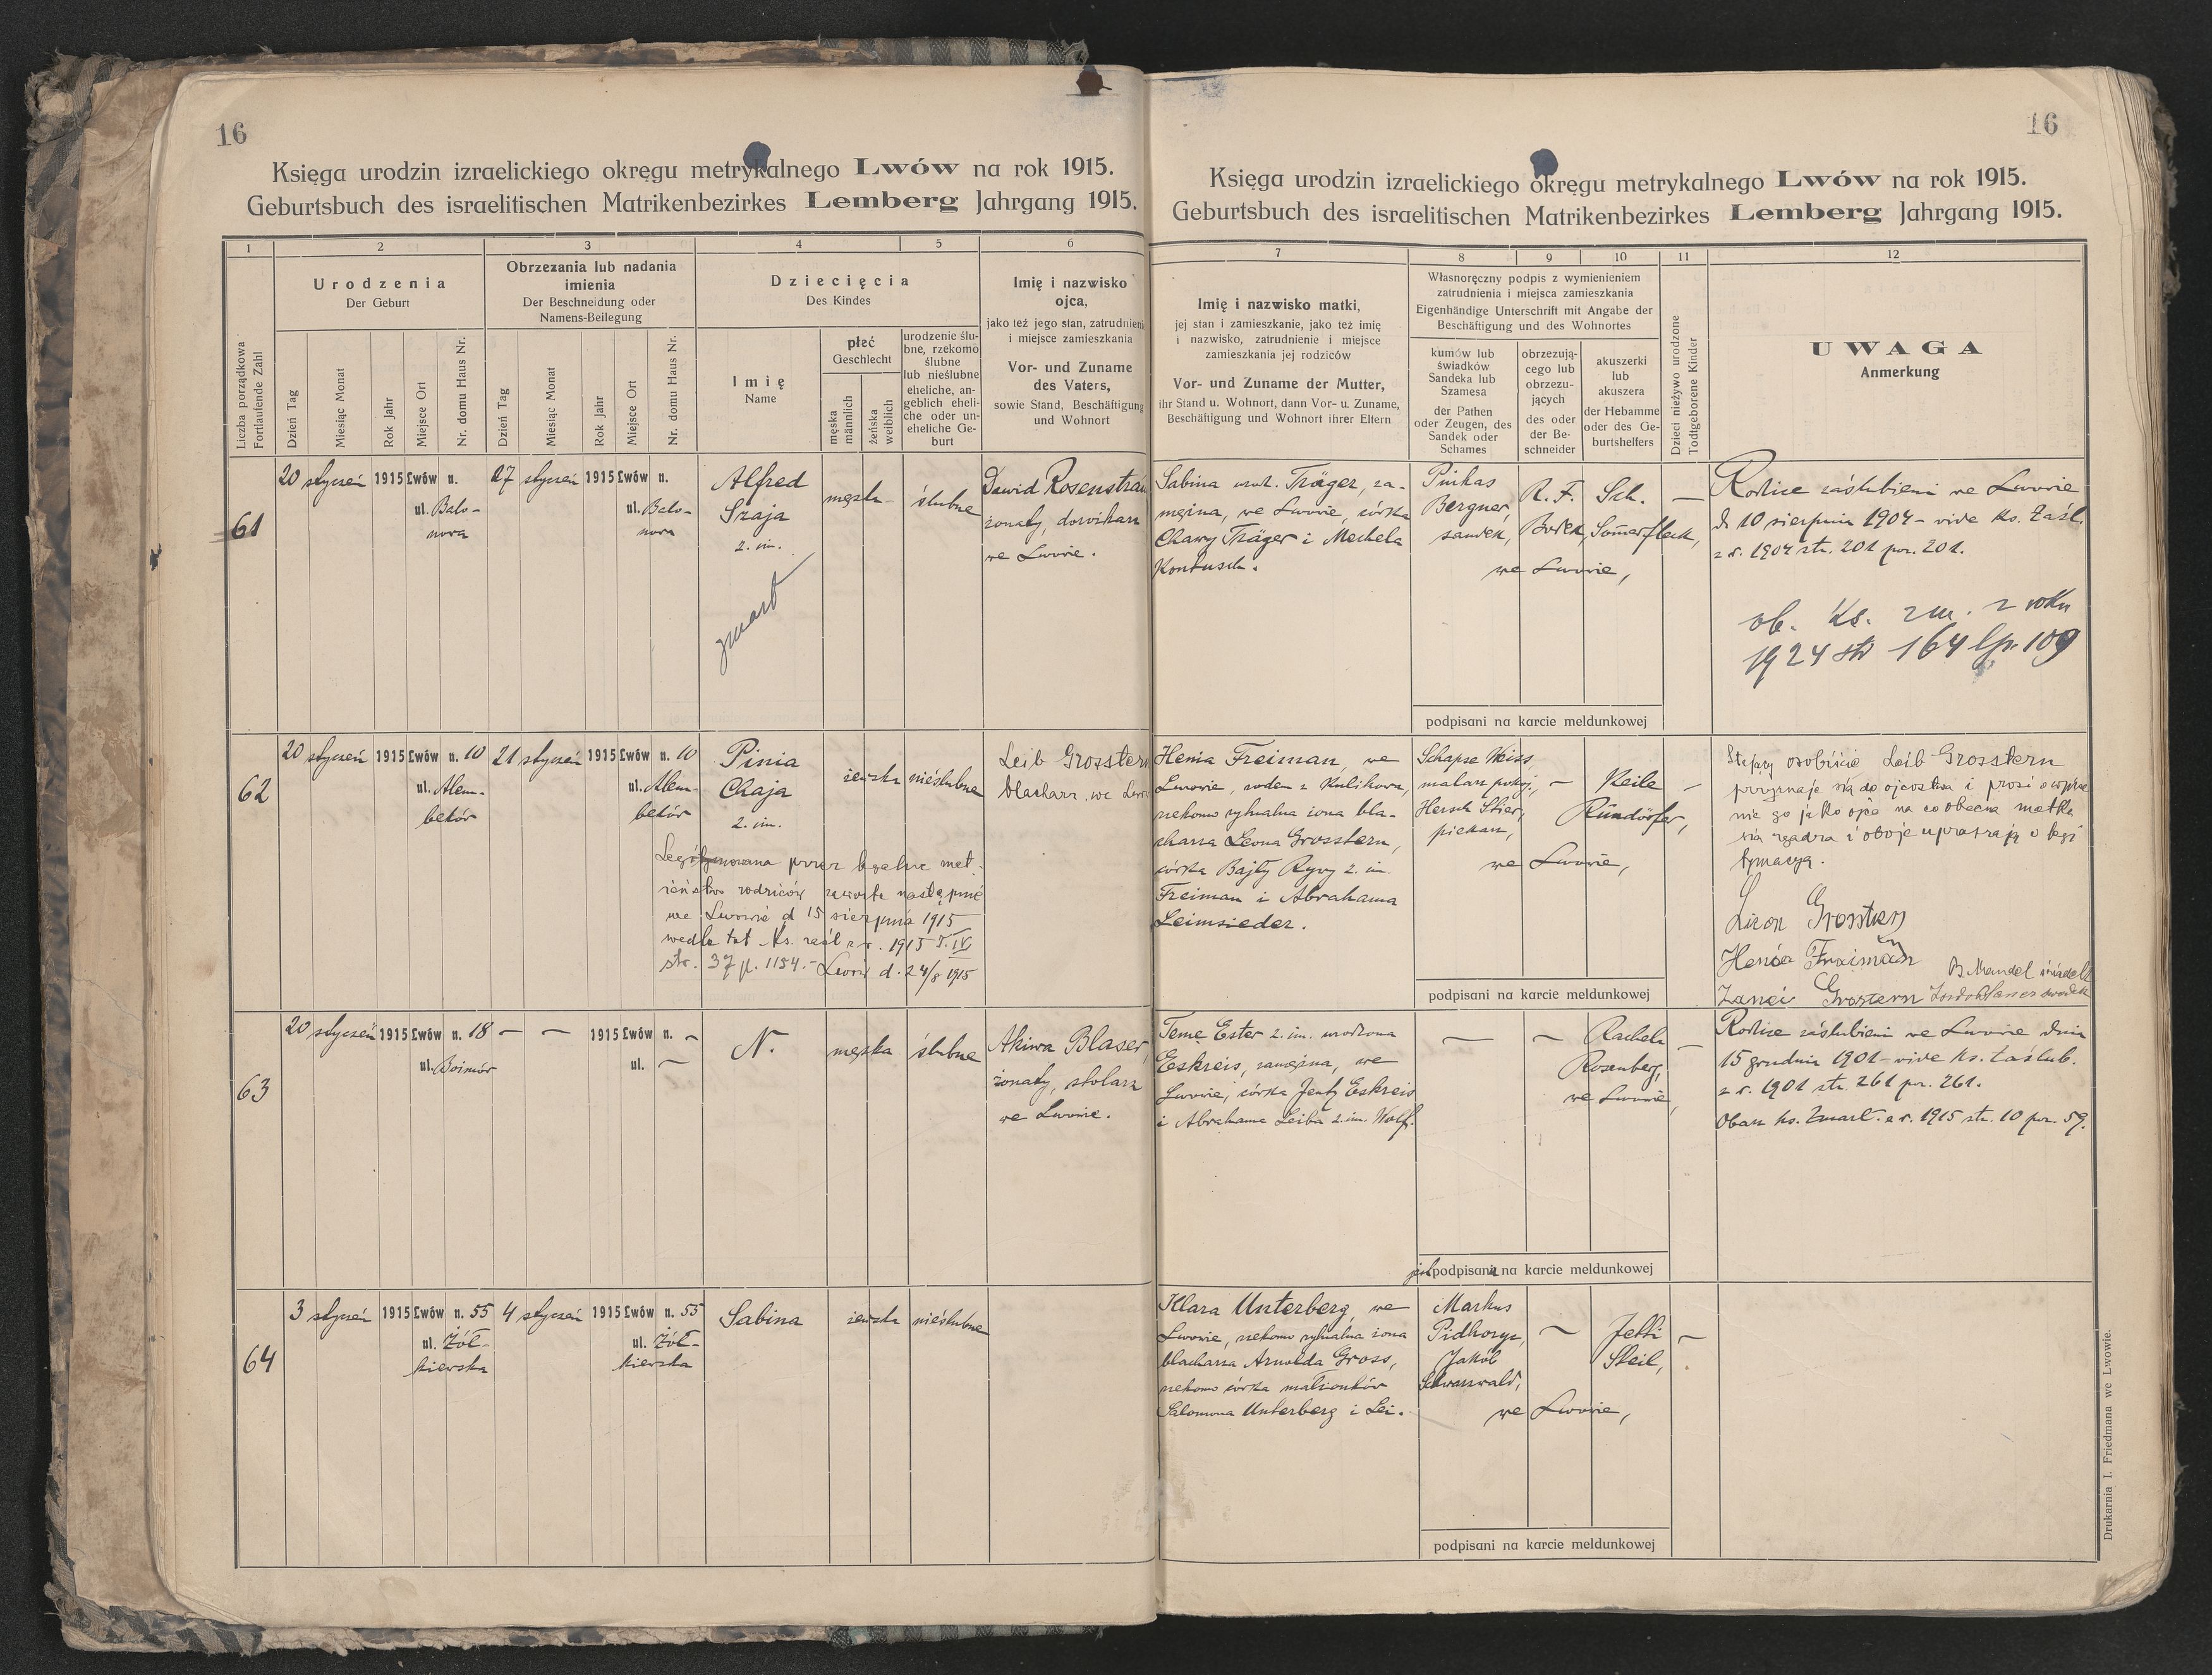 16
Księga urodzin izraelickiego okręgu metrykalnego Lwów na rok 1915.
Geburtsbuch des israelitischen Matrikenbezirkes Lemberg Jahrgang 1915.
1 2 3 4 5 6
Liczba porządkowa
Fortlaufende Zahl
Urodzenia
Der Geburt
Dzień Tag
Miesiąc Monat
Rok Jahr
Miejsce Ort
Nr. domu Haus Nr.
Obrzezania lub nadania
imienia
Der Beschneidung oder
Namens-Beilegung
Dzień Tag
Miesiąc Monat
Rok Jahr
Miejsce Ort
Nr. domu Haus Nr.
Dziecięcia
Des Kindes
Imię
Name
płeć
Geschlecht
męska
männlich
żeńska
weiblich
urodzenie ślu-
bne, rzekomo
ślubne
lub nieślubne
eheliche, an-
geblich eheli-
che oder un-
eheliche Ge-
burt
Imię i nazwisko
ojca,
jako też jego stan, zatrudnienie
i miejsce zamieszkania
Vor- und Zuname
des Vaters,
sowie Stand, Beschäftigung
und Wohnort
61
20 styczeń 1915 Lwów n.
ul. Balo-
nova
27 styczeń 1915 Lwów n.
ul. Balo-
nova
Alfred
Szaja
2. im.
zmarł
męska
ślubne
Dawid Rosenstrau
żonaty, dorożkarz
we Lwowie.
62
20 styczeń 1915 Lwów n. 10
ul. Alem-
beków
21 styczeń 1915 Lwów n. 10
ul. Alem-
beków
Pinia
Chaja
2. im.
żeńska
nieślubne
Leib Grosstern
blacharz we Lwow
Legitymowana przez legalne mał-
żeństwo rodziców zawarte następnie
we Lwowie d 15 sierpnia 1915
wedle tut. Ks. zaśl z r. 1915 T. IV
str. 37 p. 1154.- Lwów d. 24/8 1915
63
20 styczeń 1915 Lwów n. 18
ul. Boimów
— — 1915 Lwów n. —
ul. —
N.
męska
ślubne
Akiwa Blaser,
żonaty, stolarz
we Lwowie.
64
3 styczeń 1915 Lwów n. 55
ul. Żół-
kiewska
4 styczeń 1915 Lwów n. 55
ul. Żół-
kiewska
Sabina
żeńska
nieślubne
16
Księga urodzin izraelickiego okręgu metrykalnego Lwów na rok 1915.
Geburtsbuch des israelitischen Matrikenbezirkes Lemberg Jahrgang 1915.
7 8 9 10 11 12
Imię i nazwisko matki,
jej stan i zamieszkanie, jako też imię
i nazwisko, zatrudnienie i miejsce
zamieszkania jej rodziców
Vor- und Zuname der Mutter,
ihr Stand u. Wohnort, dann Vor- u. Zuname,
Beschäftigung und Wohnort ihrer Eltern
Własnoręczny podpis z wymienieniem
zatrudnienia i miejsca zamieszkania
Eigenhändige Unterschrift mit Angabe der
Beschäftigung und des Wohnortes
kumów lub
świadków
Sandeka lub
Szamesa
der Pathen
oder Zeugen, des
Sandek oder
Schames
obrzezują-
cego lub
obrzezu-
jących
des oder
der Be-
schneider
akuszerki
lub
akuszera
der Hebamme
oder des Ge-
burtshelfers
Dzieci nieżywo urodzone
Todtgeborene Kinder
UWAGA
Anmerkung
Sabina urodz. Träger, za-
mężna, we Lwowie, córka
Chawy Träger i Mechela
Kontusch.
Pinkas
Bergner,
sandek,
R. F.
Borek,
Sch.
Somerfleck,
we Lwowie,
—
podpisani na karcie meldunkowej
Rodzice zaślubieni we Lwowie
d. 10 sierpnia 1904 - vide Ks. Zaśl.
z r. 1904 str. 201 poz. 201.
ob. Ks. zm. z roku
1924 str 164 lp. 109
Henia Freiman, we
Lwowie, rodem z Kulikowa,
rzekomo rytualna żona bla-
charza Leona Grosstern,
córka Bajły Rywy 2. im.
Freiman i Abrahama
Leimsieder.
Schapse Weiss,
malarz pokoj.,
Hersch Stier,
piekarz,
—
Keile
Ründörfer,
we Lwowie,
—
podpisani na karcie meldunkowej
Stojący osobiście Leib Grosstern
przyznaje się do ojcostwa i prosi o wpisa
nie go jako ojca na co obecna matka
się zgadza i oboje upraszają o legi
tymacyą.
Leon Grosstern
Henia Freiman
B. Mandel świadek
Teme Ester 2. im. urodzona
Eskreis, zamężna, we
Lwowie, córka Jenty Eskreis
i Abrahama Leiba 2. im. Wolf.
— —
Rachela
Rosenberg,
we Lwowie,
—
jest podpisana na karcie meldunkowej
Rodzice zaślubieni we Lwowie dnia
15 grudnia 1901 - vide Ks. Zaślub.
z r. 1901 str. 261 poz. 261.
Obacz Ks. Zmarł. z r. 1915 str. 10 poz. 59.
Klara Unterberg, we
Lwowie, rzekomo rytualna żona
blacharza Arnolda Gross,
rzekomo córka małżonków
Salomona Unterberg i Lei.
Markus
Pidhoryc,
Jakób
Schwarzwald,
—
Jetti
Skeil,
we Lwowie,
—
podpisani na karcie meldunkowej
Drukarnia I. Friedmana we Lwowie.